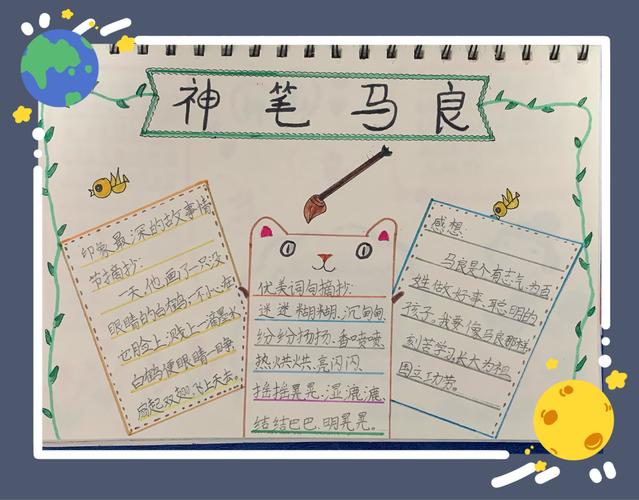 神笔马良
印象最深的故事情
节摘抄:
一天,他画了一只没
眼睛的白鹤,一不小心,在
它脸上溅上一滴墨水,
白鹤便眼睛一睁,
扇起双翅飞上天去。
优美词句摘抄:
迷迷糊糊、沉甸甸
纷纷扬扬、香喷喷
热烘烘、亮闪闪、
摇摇晃晃、湿漉漉、
结结巴巴、明晃晃。
感想:
马良是个有志气、为百
姓做好事、聪明的
孩子。我要像马良那样
刻苦学习,长大为祖
国立功劳。